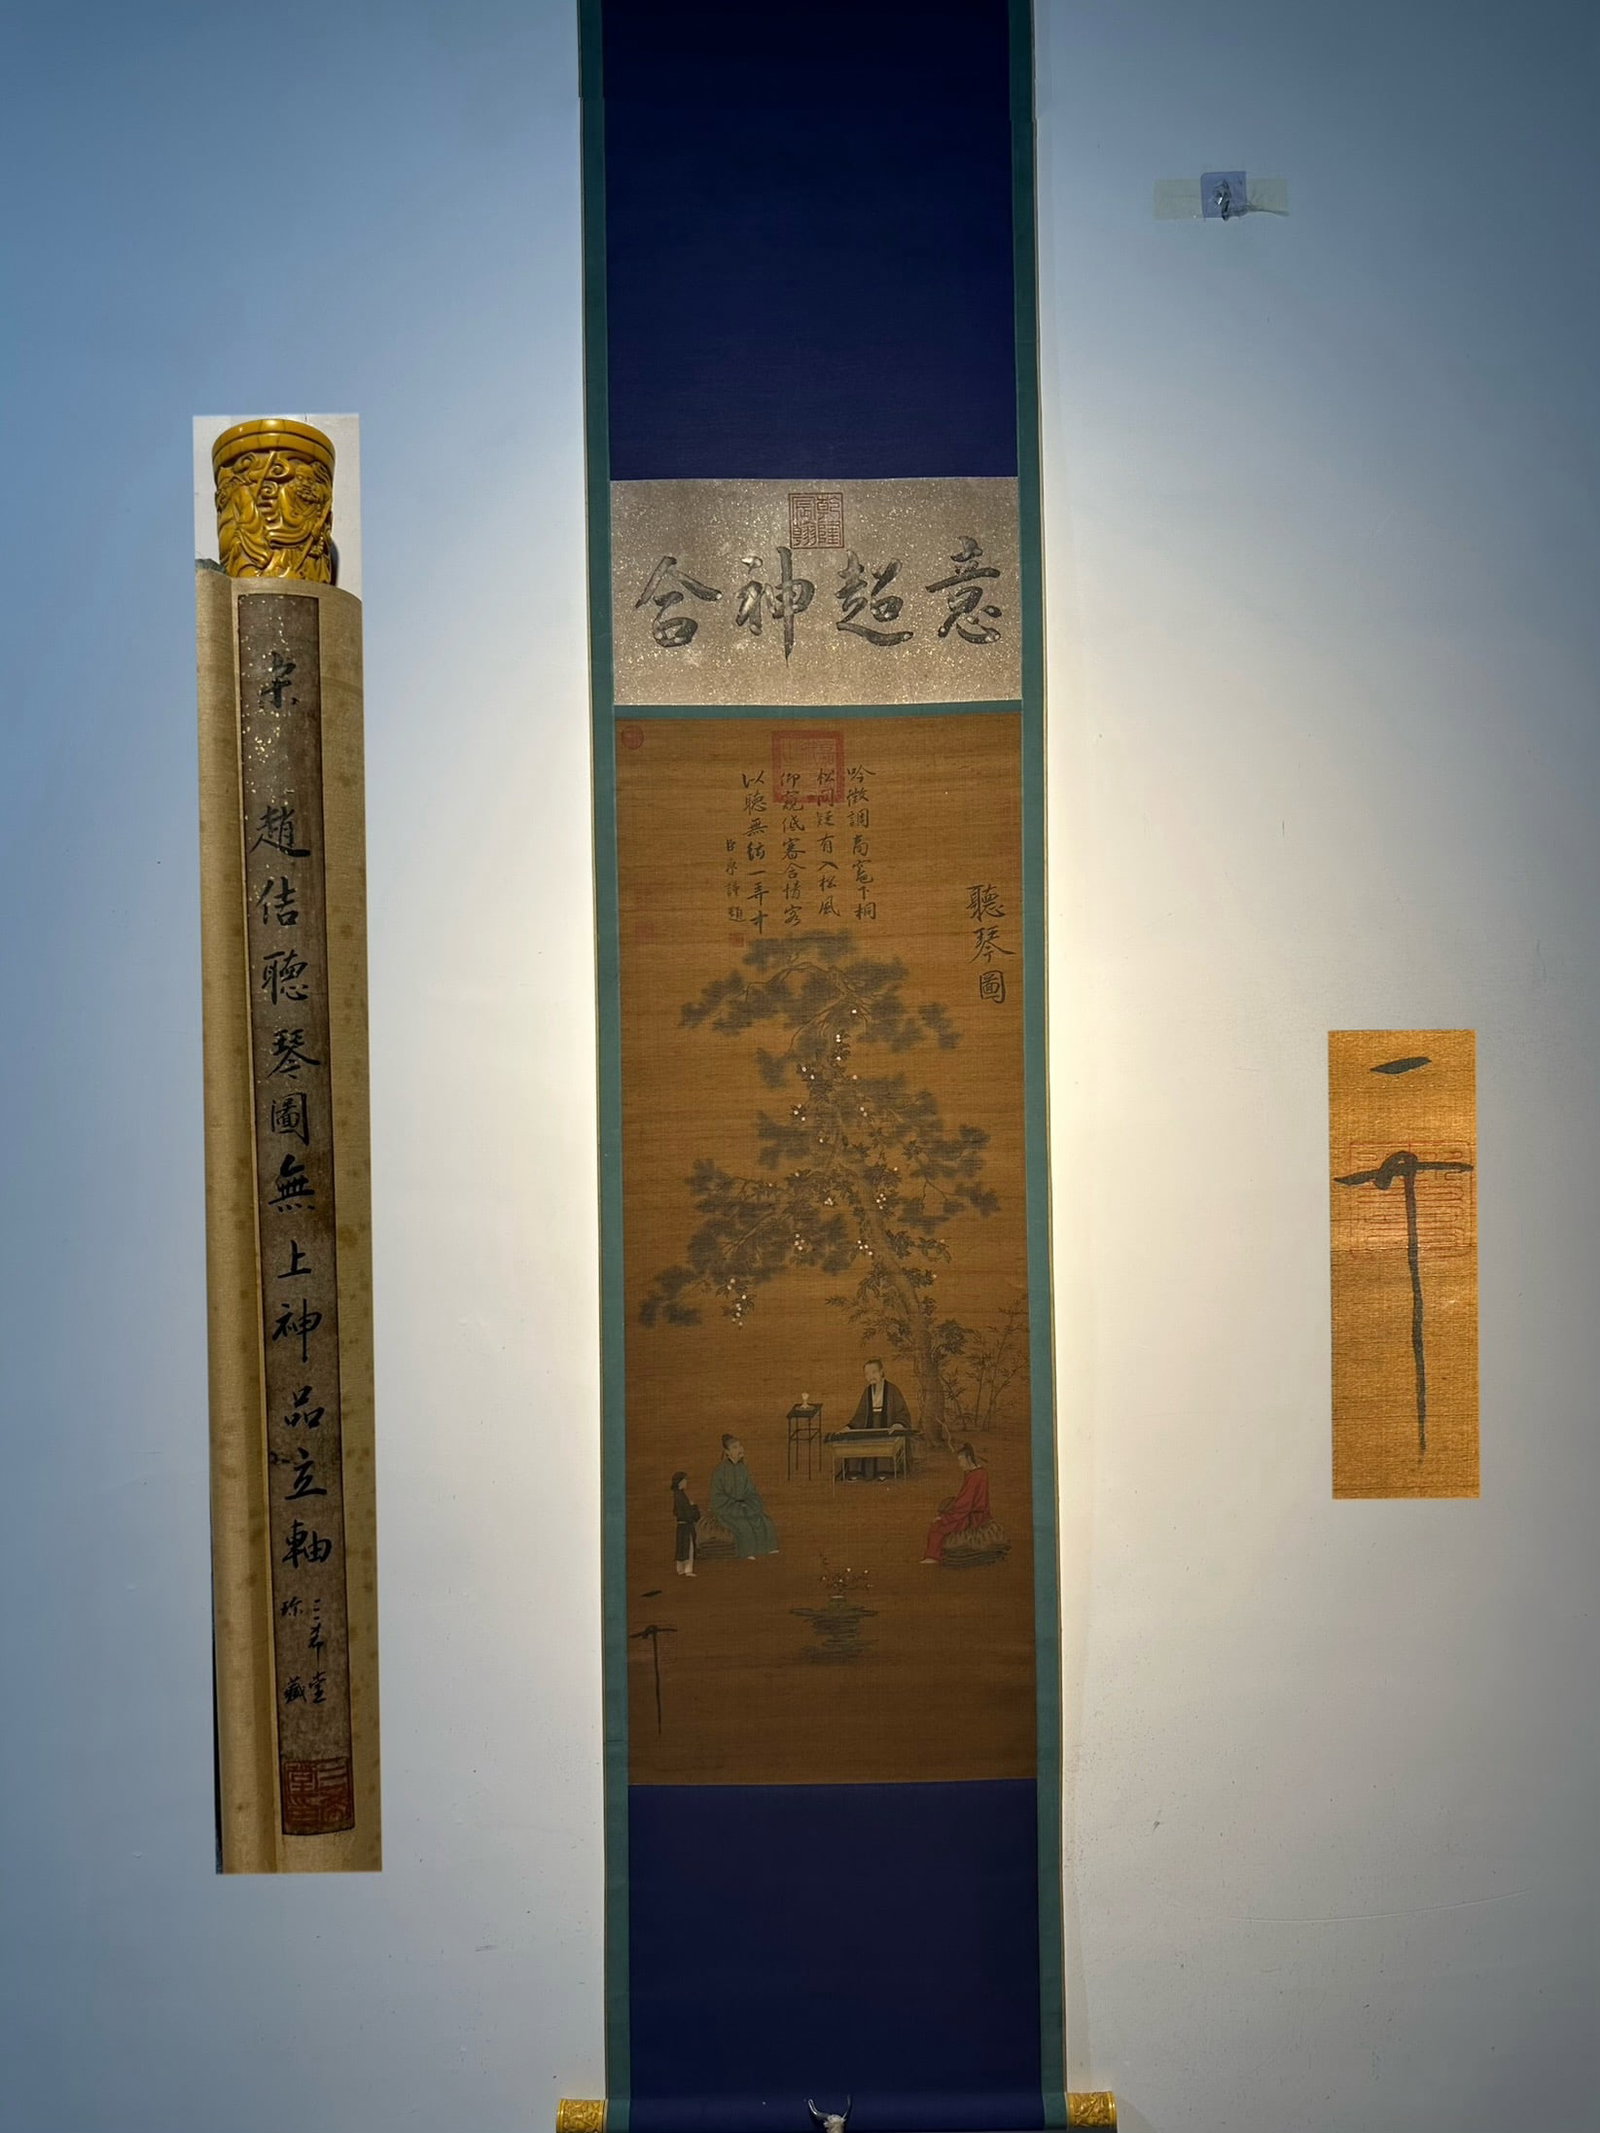 宋 趙佶聽琴圖無上神品立軸
三希堂
珍藏
三希堂印
乾隆宸翰
意超神合
聽琴圖
吟徵調商竈下桐
松間疑有入松風
仰窺低審含情客
以聽無絃一弄中
臣京謹題